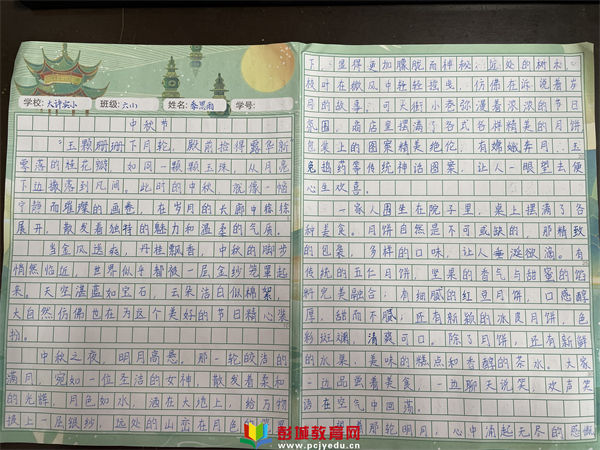 学校:大许实小 班级:六(1) 姓名:李思雨 学号:
中秋节
“玉颗珊珊下月轮,殿前拾得露华新”
零落的桂花瓣,如同一颗颗玉珠,从月亮
下边撒落到凡间。此时的中秋,就像一幅
宁静而璀璨的画卷,在岁月的长廊中栋栋
展开,散发着独特的魅力和温柔的气质。
当金风送爽,丹桂飘香,中秋的脚步
悄然临近,世界似乎替被一层金纱笼罩起
来。天空湛蓝如宝石,云朵洁白似棉絮,
大自然仿佛也在为这个美好的节日精心装
扮。
中秋之夜,明月高悬。那一轮皎洁的
满月,宛如一位圣洁的女神,散发着柔和
的光辉,月色如水,洒在大地上,给万物
换上一层银纱,远处的山峦在月色的
下,显得更加朦胧而神秘;近处的树木,
枝叶在微风中轻轻摇曳,仿佛在诉说着岁
月的故事;可大街小巷弥漫着浓浓的节日
氛围,商店里摆满了各式各样精美的月饼,
包装上的图案精美绝伦,有嫦娥奔月、玉
兔捣药等传统神话图案,让人一眼望去便
心生欢喜。
一家人围坐在院子里,桌上摆满了各
种美食。月饼自然是不可或缺的,那精致
的包装,多样的口味,让人垂涎欲滴。有
传统的五仁月饼,坚果的香气与甜蜜的馅
料完美融合;有细腻的红豆月饼,口感醇
厚,甜而不腻;还有新颖的冰皮月饼,色
彩斑斓,清爽可口。除了月饼,还有新鲜
的水果、美味的糕点和香醇的茶水。大家
一边品尝着美食,一边聊天说笑,欢声笑
语在空气中回荡。
着那轮明月,心中涌起无尽的思
彭城教育网
www.pcjyedu.cn